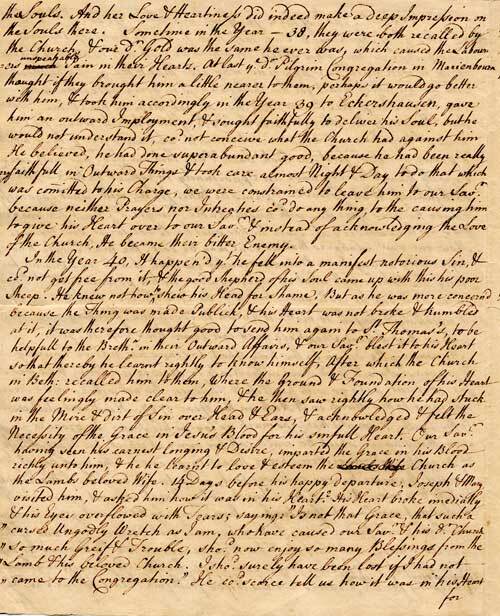 the Souls. And her Love & Heartiness did indeed make a deep Impression on
the Souls there. Sometime in the Year - 38, they were both recalled by
the Church, & our dr. Gold was the Same he ever was, which caused the Labour
ers unspeakable Pain in their Hearts. At last ye. dr. Pilgrim Congregation in Marienbourn
thought if they brought him a little nearer to them, perhaps it would go better
with him, & took him accordingly in the Year 39 to Eckershausen, gave
him an outward Imployment, & sought faithfully to deliver his Soul, but he
would not understand it, cod. not conceive what the Church had against him
He believed, he had done superabundant good, because he had been really
faithfull in Outward Things & took care almost Night & Day to do that which
was comitted to his Charge, we were constrained to leave him to our Savr.
because neither Prayers nor Intreaties cod. do any thing, to the causing him
to give his Heart over to our Savr. & instead of acknowledging the Love
of the Church, He became their bitter Enemy.
In the Year 40, it happen'd yt. he fell into a manifest notorious Sin, &
cod. not get free from it, & the good Shepherd of his Soul came up with this his poor
Sheep. He knew not how to shew his Head for Shame. But as he was more concernd
because the Thing was made Publick, & his Heart was not broke & humbled
at it, it was therefore thought good to send him again to St. Thomas's, to be
helpfull to the Brethn. in their Outward Affairs, & our Savr. blest it to his Heart
so that thereby he learnt rightly to know himself, After which the Church
in Beth: recalled him to them, Where the ground & Foundation of his Heart
was feelingly made clear to him, & he then saw rightly how he had stuck
in the Mire & dirt of Sin over Head & Ears, & acknowledged & felt the
Necessity of the Grace in Jesu's Blood for his sinfull Heart. Our Savr.
having seen his earnest longing & Desire, imparted the Grace in his Blood
richly unto him, & he learnt to love & esteem the Church as
the Lambs beloved Wife. 14 Days before his happy departure, Joseph & Mary
visited him, & asked him how it was in his Heart. His Heart broke
& his Eyes overflowed with Tears; saying; "Is not that Grace, that such a
" cursed Ungodly Wretch as I am, who have caused our Savr. & his dr. Church
" so much Greif & Trouble, shod. now enjoy so many Blessings from the
" Lamb & his beloved Church. I shod. surely have been lost if I had not
" came to the Congregation." He cod. scarce tell us how it was in his Heart
for